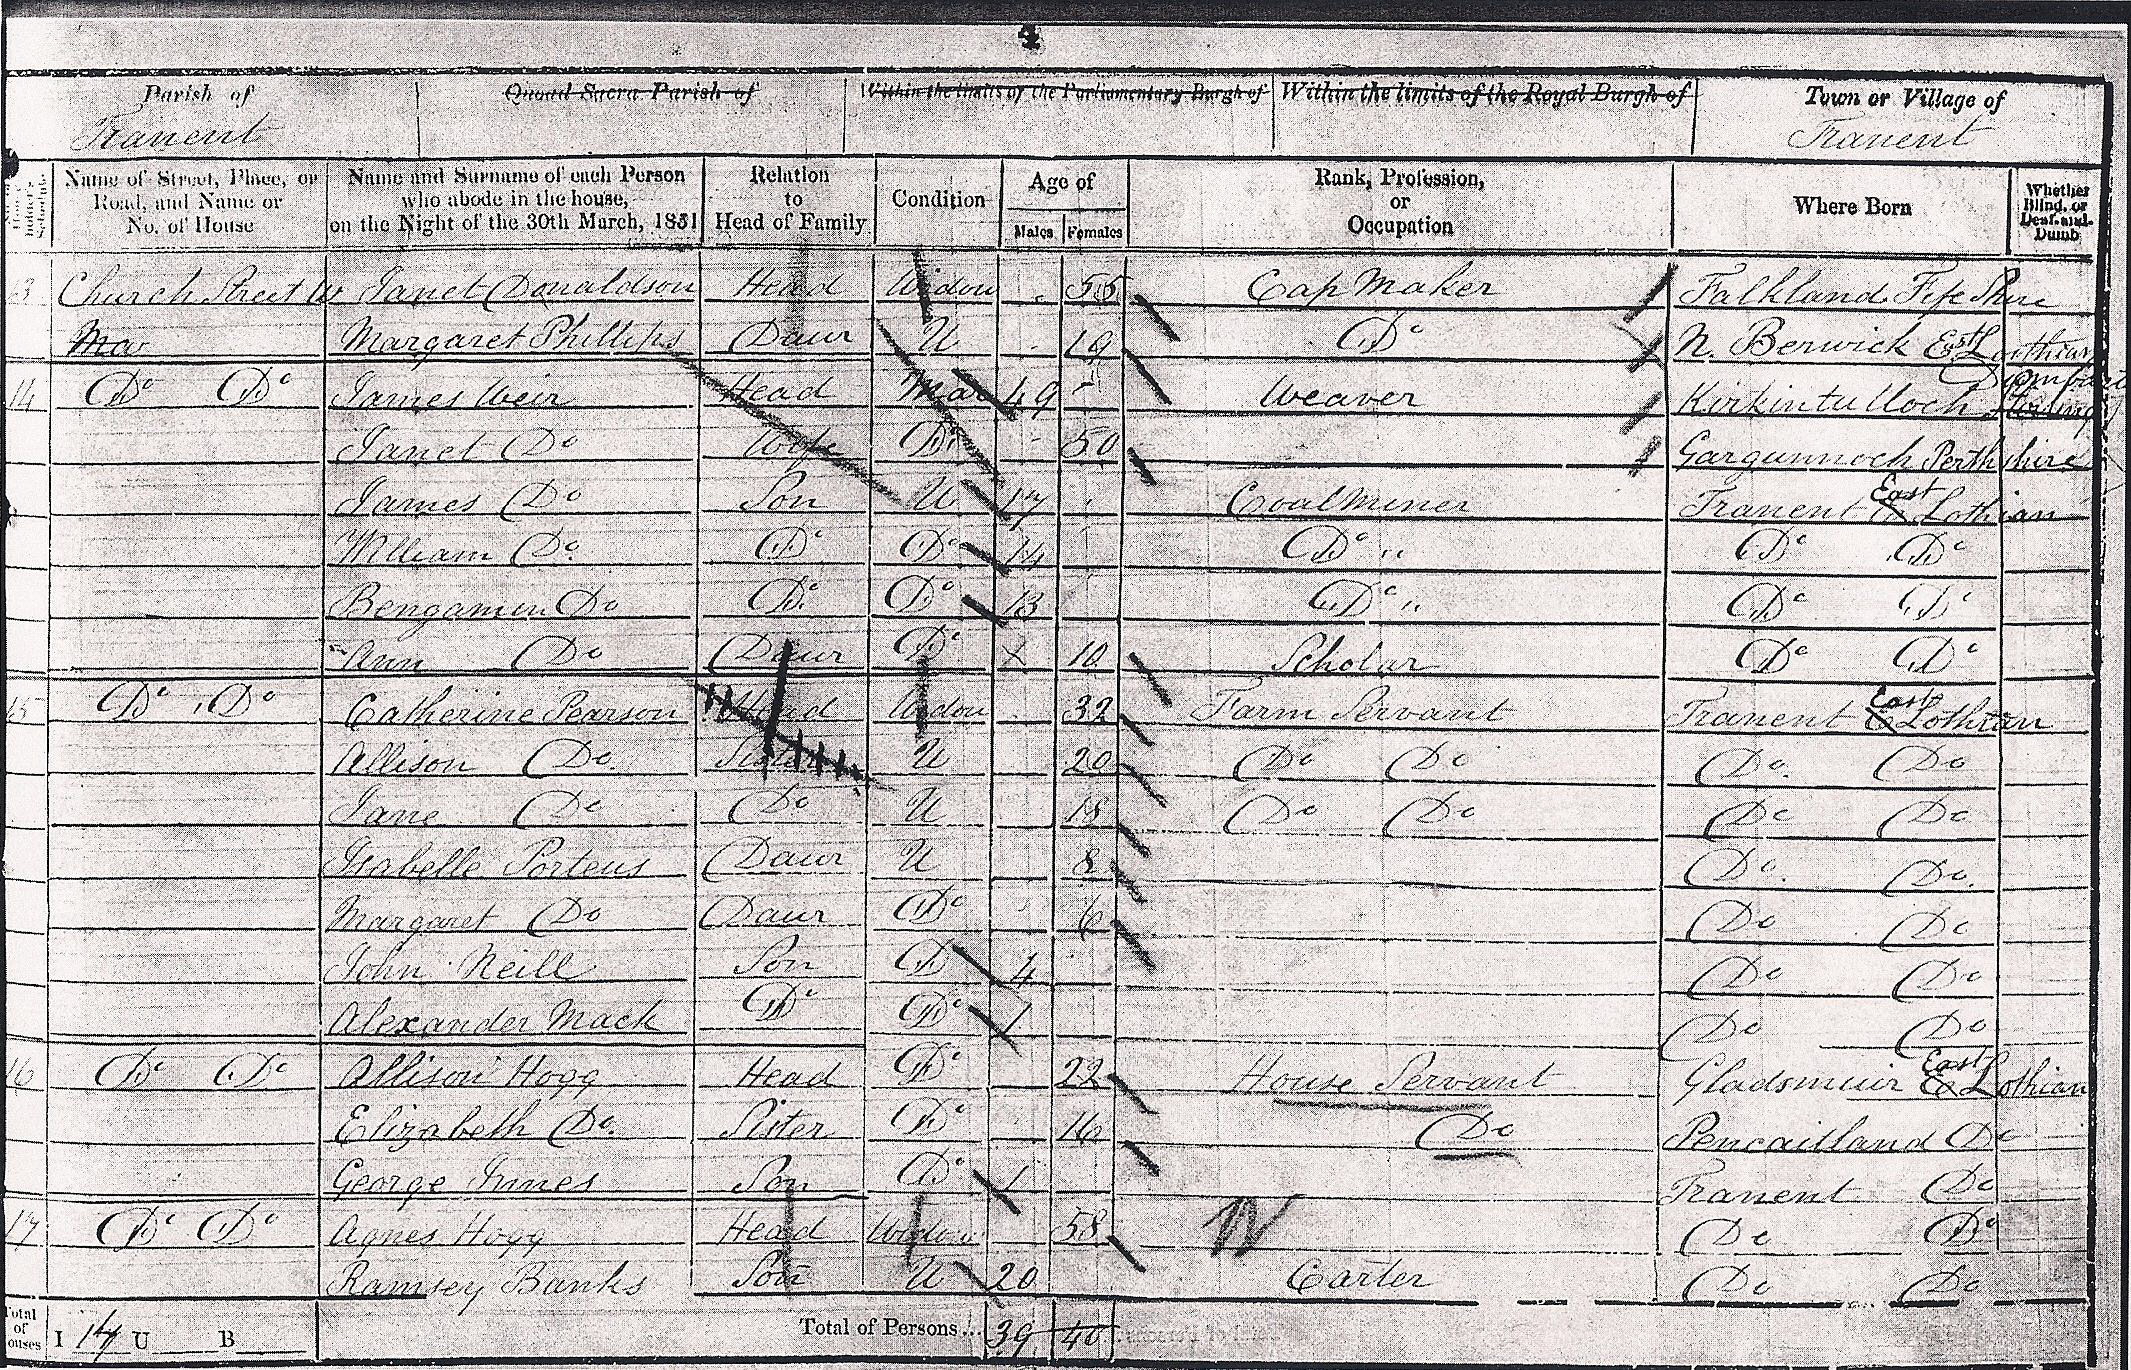 4
Parish of Quoad Sacra Parish of Within the limits of the Parliamentary Burgh of Within the limits of the Royal Burgh of Town or Village of
Tranent Tranent
Name of Street, Place, or Road, and Name or No. of House Name and Surname of each Person who abode in the house, on the Night of the 30th March, 1851 Relation to Head of Family Condition Age of Males Females Rank, Profession, or Occupation Where Born Whether Blind, or Deaf-and-Dumb
13 Church Street W Janet Donaldson Head Widow 55 Cap Maker Falkland Fife Shire
Margaret Phillips Daur U 19 Do N. Berwick East Lothian
14 Do Do James Weir Head Mar 49 Weaver Kirkintulloch
Janet Do Wife Do 50 Gargunnoch Perthshire
James Do Son U 17 Coal Miner Tranent East Lothian
William Do Do Do 14 Do " Do Do
Bengamin Do Do Do 13 Do " Do Do
Ann Do Daur Do 10 Scholar Do Do
15 Do Do Catherine Pearson Head Widow 32 Farm Servant Tranent East Lothian
Allison Do Sister U 20 Do Do Do Do
Jane Do Do U 18 Do Do Do Do
Isabelle Porteus Daur U 8 Do Do
Margaret Do Daur Do 6 Do Do
John Neill Son D 4 Do Do
Alexander Mack Do Do 1 Do Do
16 Do Do Allison Hogg Head Do 22 House Servant Gladsmuir East Lothian
Elizabeth Do Sister Do 16 Do Pencaitland Do
George Innes Son Do 1 Tranent Do
17 Do Do Agnes Hogg Head Widow 58 Do Do
Ramsey Banks Son U 20 Carter Do Do
Total of Houses I 17 U B Total of Persons... 39 40